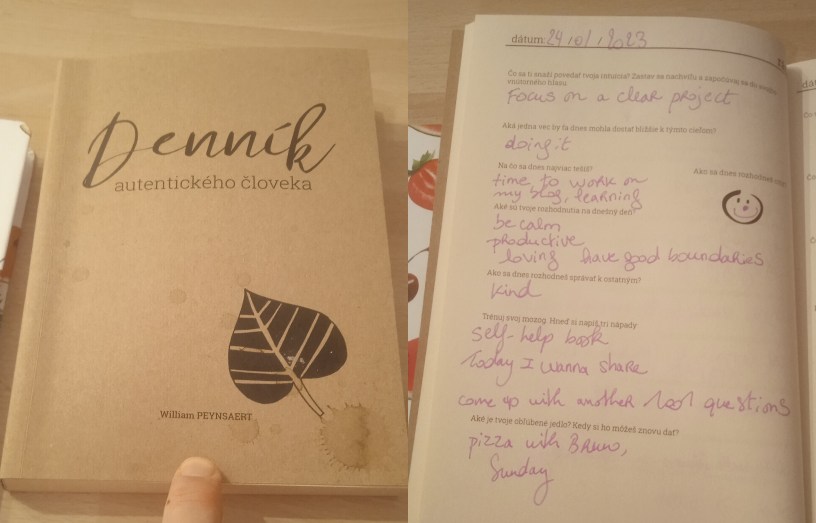 Denník
autentického človeka
William PEYNSAERT
dátum: 24/10/2023
Čo sa ti snaží povedať tvoja intuícia? Zastav sa na chvíľu a započúvaj sa do svojho
vnútorného hlasu.
Focus on a clear project
Aká jedna vec by ťa dnes mohla dostať bližšie k tvojim cieľom?
doing it
Na čo sa dnes najviac tešíš?
time to work on
my blog, learning
Ako sa dnes rozhodneš
Aké sú tvoje rozhodnutia na dnešný deň?
be calm
productive
loving have good boundaries
Ako sa dnes rozhodneš správať k ostatným?
kind
Trénuj svoj mozog. Hneď si napíš tri nápady
self-help book
Today I wanna share
come up with another 1001 questions
Aké je tvoje obľúbené jedlo? Kedy si ho môžeš znovu dať?
pizza with Bruno,
Sunday